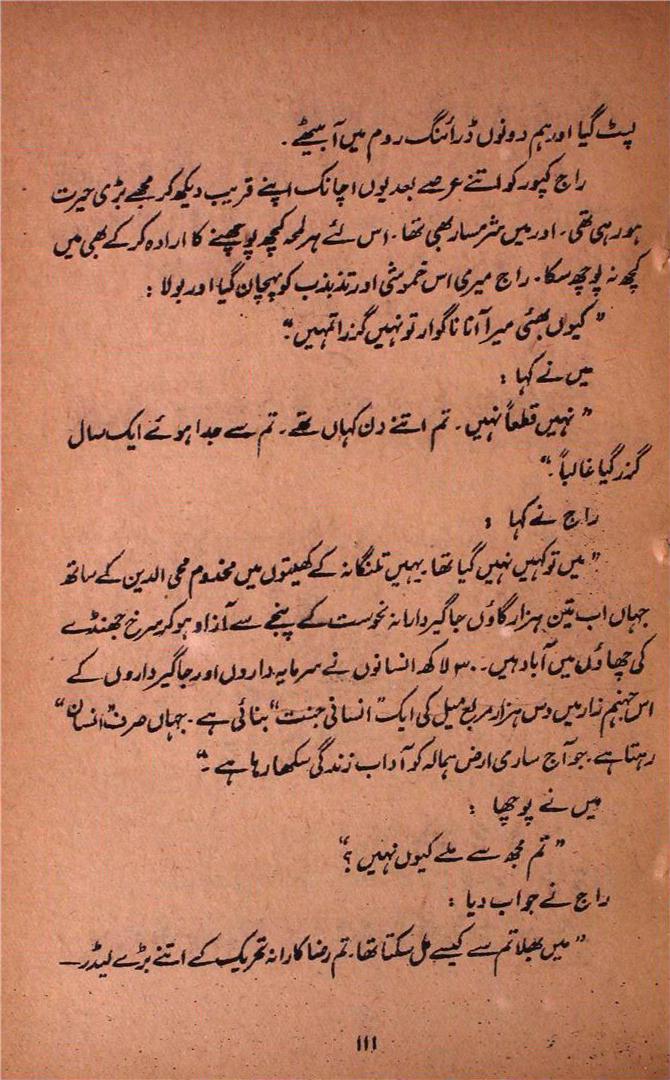 پٹ گیا اور ہم دونوں ڈرائنگ روم میں آ بیٹھے۔
راج کپور کو اتنے عرصے بعد یوں اچانک اپنے قریب دیکھ کر مجھے بڑی حیرت
ہو رہی تھی۔ اور میں شرمسار بھی تھا۔ اس لئے ہر لمحہ کچھ پوچھنے کا ارادہ کر کے بھی میں
کچھ نہ پوچھ سکا۔ راج میری اس خموشی اور تذبذب کو پہچان گیا اور بولا :
"کیوں بھئی میرا آنا ناگوار تو نہیں گزرا تمہیں"
میں نے کہا :
"نہیں قطعاً نہیں۔ تم اتنے دن کہاں تھے۔ تم سے جدا ہوئے ایک سال
گزر گیا غالباً۔"
راج نے کہا :
"میں تو کہیں نہیں گیا تھا۔ یہیں تلنگانہ کے کھیتوں میں مخدوم محی الدین کے ساتھ
جہاں اب تین ہزار گاؤں جاگیردارانہ نحوست کے پنجے سے آزاد ہو کر سرخ جھنڈے
کی چھاؤں میں آباد ہیں۔ ۳۰ لاکھ انسانوں نے سرمایہ داروں اور جاگیرداروں کے
اس جہنم زار میں دس ہزار مربع میل کی ایک "انسانی جنت" بنائی ہے۔ جہاں صرف "انسان"
رہتا ہے۔ جو آج ساری ارض ہمالہ کو آداب زندگی سکھا رہا ہے۔"
میں نے پوچھا :
"تم مجھ سے ملے کیوں نہیں ؟"
راج نے جواب دیا :
"میں بھلا تم سے کیسے مل سکتا تھا۔ تم رضاکارانہ تحریک کے اتنے بڑے لیڈر —
۱۱۱